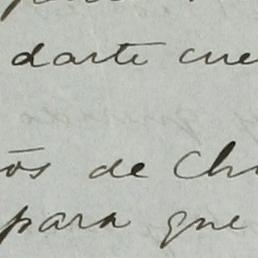 darte cue
os de Chi
para que